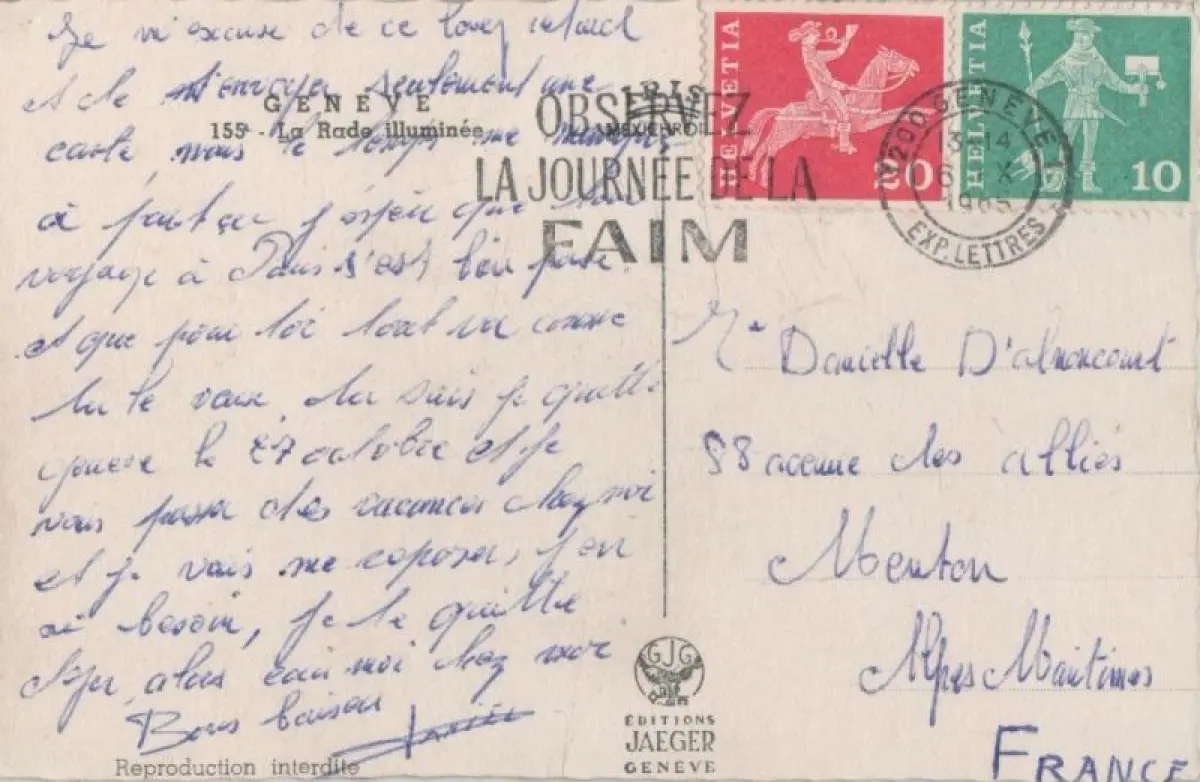 Je m'excuse de ce long retard
et de t'envoyer seulement une
carte, mais le temps me manque
à part ça j'espère que ton
voyage à Paris s'est bien passé
et que pour toi tout va comme
tu le veux, je quitte
Genève le 27 octobre et je
vais passer des vacances chez moi
et je vais me reposer, j'en
ai besoin, je te quitte
chez moi
Bons baisers
GENÈVE
155 - La Rade illuminée
IRIS
MEXICHROME
OBSERVEZ
LA JOURNÉE DE LA
FAIM
HELVETIA
20
HELVETIA
10
1200 GENÈVE 1
EXP. LETTRES
Danielle D'alnoncourt
88 avenue des alliés
Menton
Alpes Maritimes
FRANCE
GJG
ÉDITIONS
JAEGER
GENÈVE
Reproduction interdite